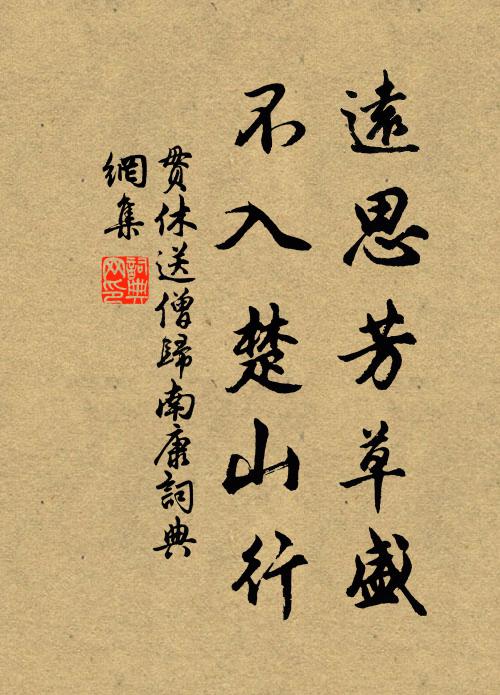 遠思芳草盛
不入楚山行
貫休送僧歸南康詞典
網集
詞典
网印